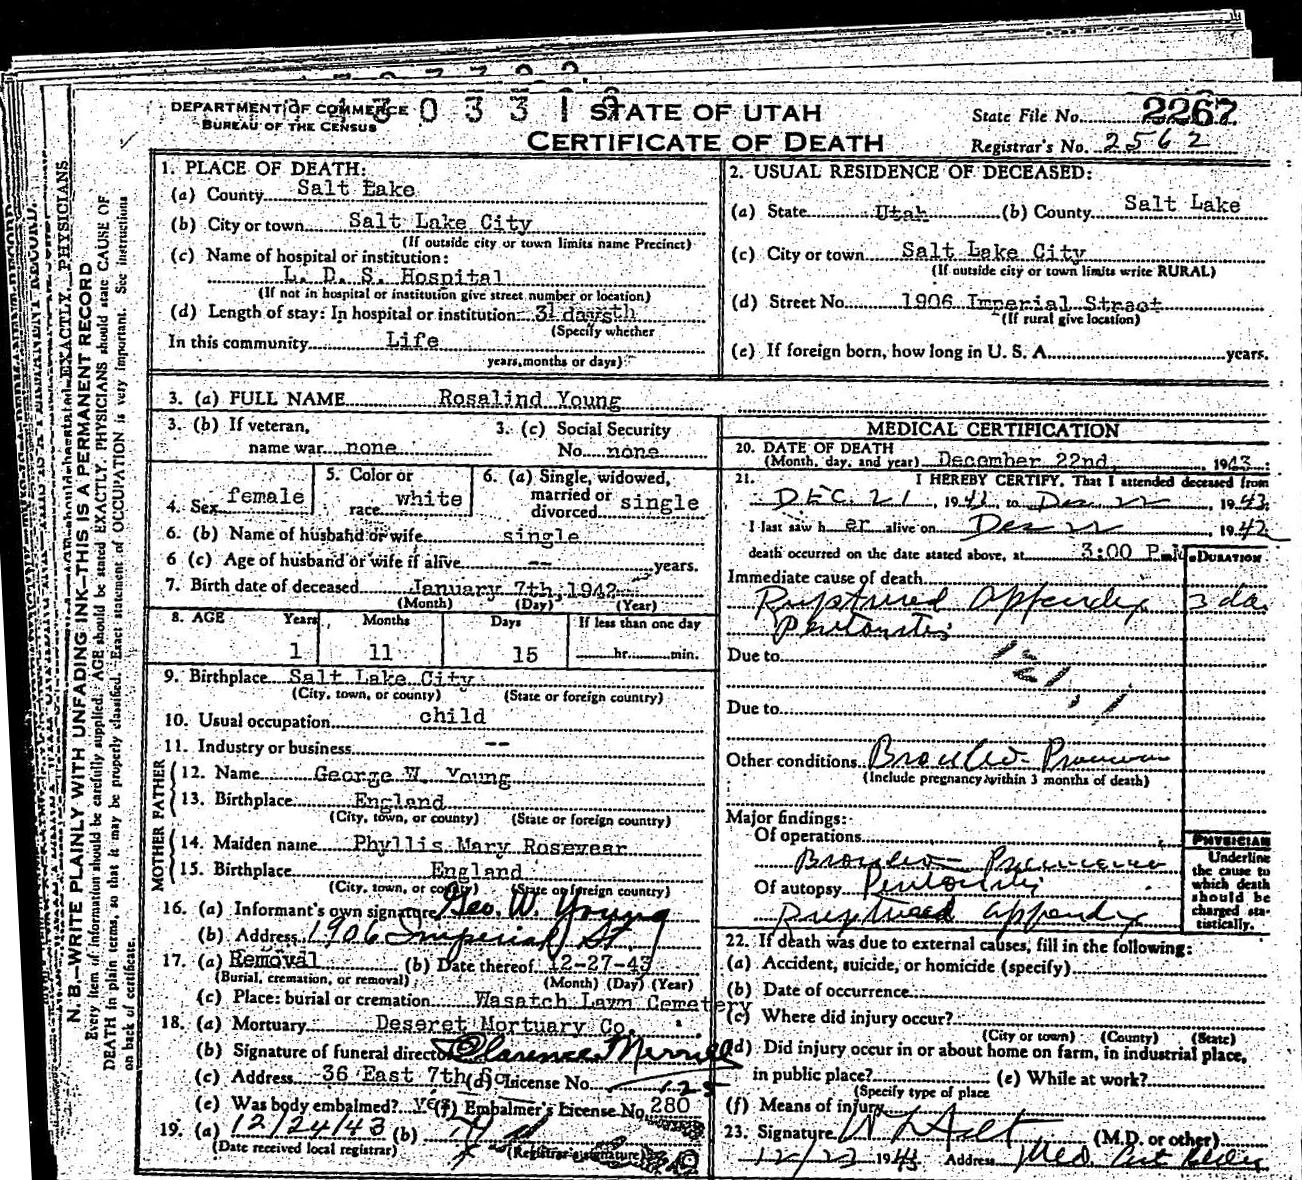 DEPARTMENT OF COMMERCE
BUREAU OF THE CENSUS
STATE OF UTAH
CERTIFICATE OF DEATH
State File No. 2267
Registrar's No. 2562
1. PLACE OF DEATH:
(a) County Salt Lake
(b) City or town Salt Lake City
(If outside city or town limits name Precinct)
(c) Name of hospital or institution:
L. D. S. Hospital
(If not in hospital or institution give street number or location)
(d) Length of stay: In hospital or institution
(Specify whether
In this community Life
years, months or days)
2. USUAL RESIDENCE OF DECEASED:
(a) State Utah (b) County Salt Lake
(c) City or town Salt Lake City
(If outside city or town limits write RURAL)
(d) Street No. 1906 Imperial Street
(If rural give location)
(e) If foreign born, how long in U. S. A. years.
3. (a) FULL NAME Rosalind Young
3. (b) If veteran,
name war none
3. (c) Social Security
No. none
4. Sex female
5. Color or
race white
6. (a) Single, widowed,
married or
divorced single
6. (b) Name of husband or wife single
6 (c) Age of husband or wife if alive -- years.
7. Birth date of deceased January 7th, 1942
(Month) (Day) (Year)
8. AGE Years Months Days If less than one day
1 11 15 hr. min.
9. Birthplace Salt Lake City
(City, town, or county) (State or foreign country)
10. Usual occupation child
11. Industry or business --
FATHER
12. Name George W. Young
13. Birthplace England
(City, town, or county) (State or foreign country)
MOTHER
14. Maiden name Phyllis Mary Rosevear
15. Birthplace England
(City, town, or county) (State or foreign country)
16. (a) Informant's own signature Geo. W. Young
(b) Address 1906 Imperial St
17. (a) Removal (b) Date thereof 12-27-43
(Burial, cremation, or removal) (Month) (Day) (Year)
(c) Place: burial or cremation Wasatch Lawn Cemetery
18. (a) Mortuary Deseret Mortuary Co.
(b) Signature of funeral director Clarence Merrill
(c) Address 36 East 7th So. (d) License No. 125
(e) Was body embalmed? yes (f) Embalmer's License No. 280
19. (a) 12/24/43 (b)
(Date received local registrar) (Registrar's signature)
MEDICAL CERTIFICATION
20. DATE OF DEATH
(Month, day, and year) December 22nd, 1943
21. I HEREBY CERTIFY, That I attended deceased from
DEC. 21, 1943, to Dec 22, 1943
I last saw her alive on Dec 22 1942
death occurred on the date stated above, at 3:00 P.M.
DURATION
Immediate cause of death
Ruptured appendix 3 da.
Peritonitis
Due to
121.1
Due to
Other conditions Broncho-Pneumonia
(Include pregnancy within 3 months of death)
Major findings:
Of operations
Broncho Pneumonia
Of autopsy Peritonitis
Ruptured appendix
PHYSICIAN
Underline
the cause to
which death
should be
charged sta-
tistically.
22. If death was due to external causes, fill in the following:
(a) Accident, suicide, or homicide (specify)
(b) Date of occurrence
(c) Where did injury occur?
(City or town) (County) (State)
(d) Did injury occur in or about home on farm, in industrial place,
in public place? (e) While at work?
(Specify type of place
(f) Means of injury
23. Signature (M.D. or other)
12/23 Address Med.
N. B.—WRITE PLAINLY WITH UNFADING INK—THIS IS A PERMANENT RECORD
Every item of information should be carefully supplied. AGE should be stated EXACTLY. PHYSICIANS should state CAUSE OF
DEATH in plain terms, so that it may be properly classified. Exact statement of OCCUPATION is very important. See instructions
on back of certificate.